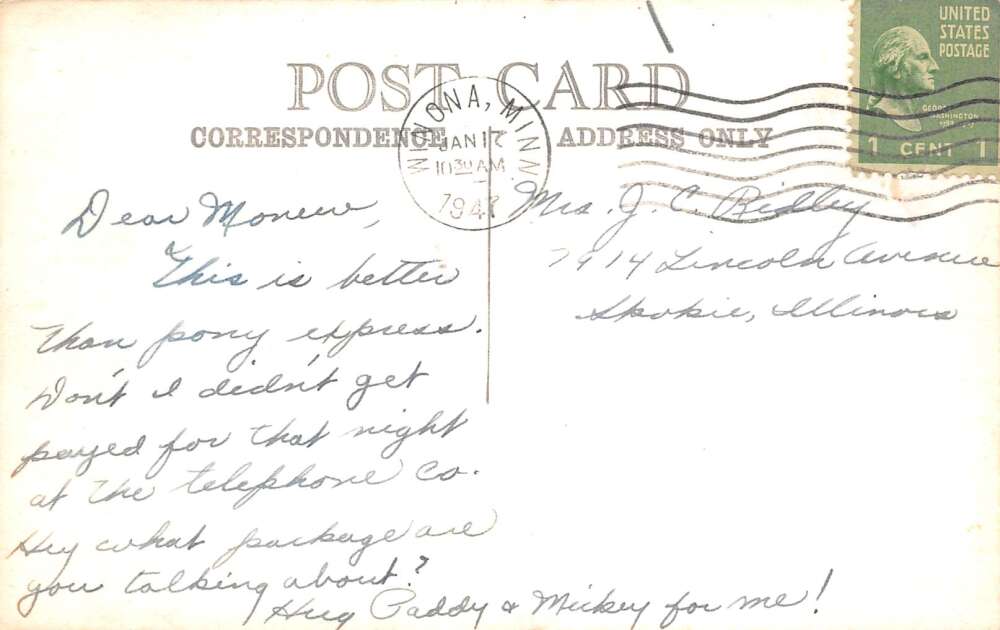 POST CARD
CORRESPONDENCE ADDRESS ONLY
UNITED
STATES
POSTAGE
GEORGE
WASHINGTON
1 CENT 1
WINONA, MINN.
JAN 17
10 30 AM
194
Dear
This is better
than pony express.
Don't I didn't get
payed for that night
at the telephone co.
Hey what package are
you talking about?
Hug Paddy & Mickey for me!
Mrs. J. C. Ridley
7914 Lincoln Avenue
Skokie, Illinois